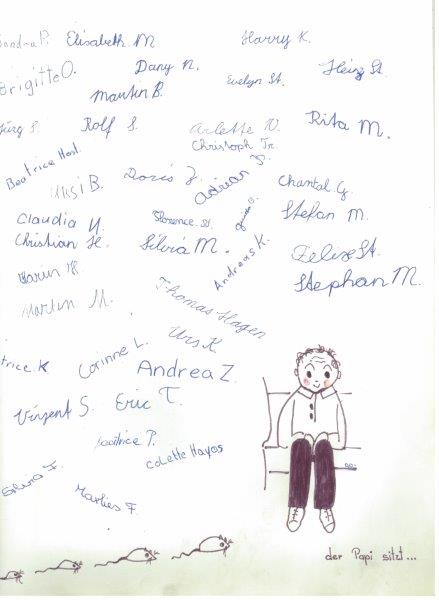 Sandra P. Elisabeth M Harry K.
Brigitte O. Dany N. Evelyn St. Heinz St.
Martin B.
Jürg S. Rolf S. Arlette V. Rita M.
Christoph Tr.
Beatrice Host.
Ursi B. Doris Z. Adrian S. Chantal G.
Claudia Y. Florence St. Stefan M.
Christian H. Silvia M. Andreas K. Felix St.
Karin W. Stephan M.
Martin M. Thomas Hagen
Urs K.
trice K Corinne L. Andrea Z.
Vinzent S. Eric T.
Beatrice P.
Colette Hayos
Silvia F.
Marlies F.
der Papi sitzt...